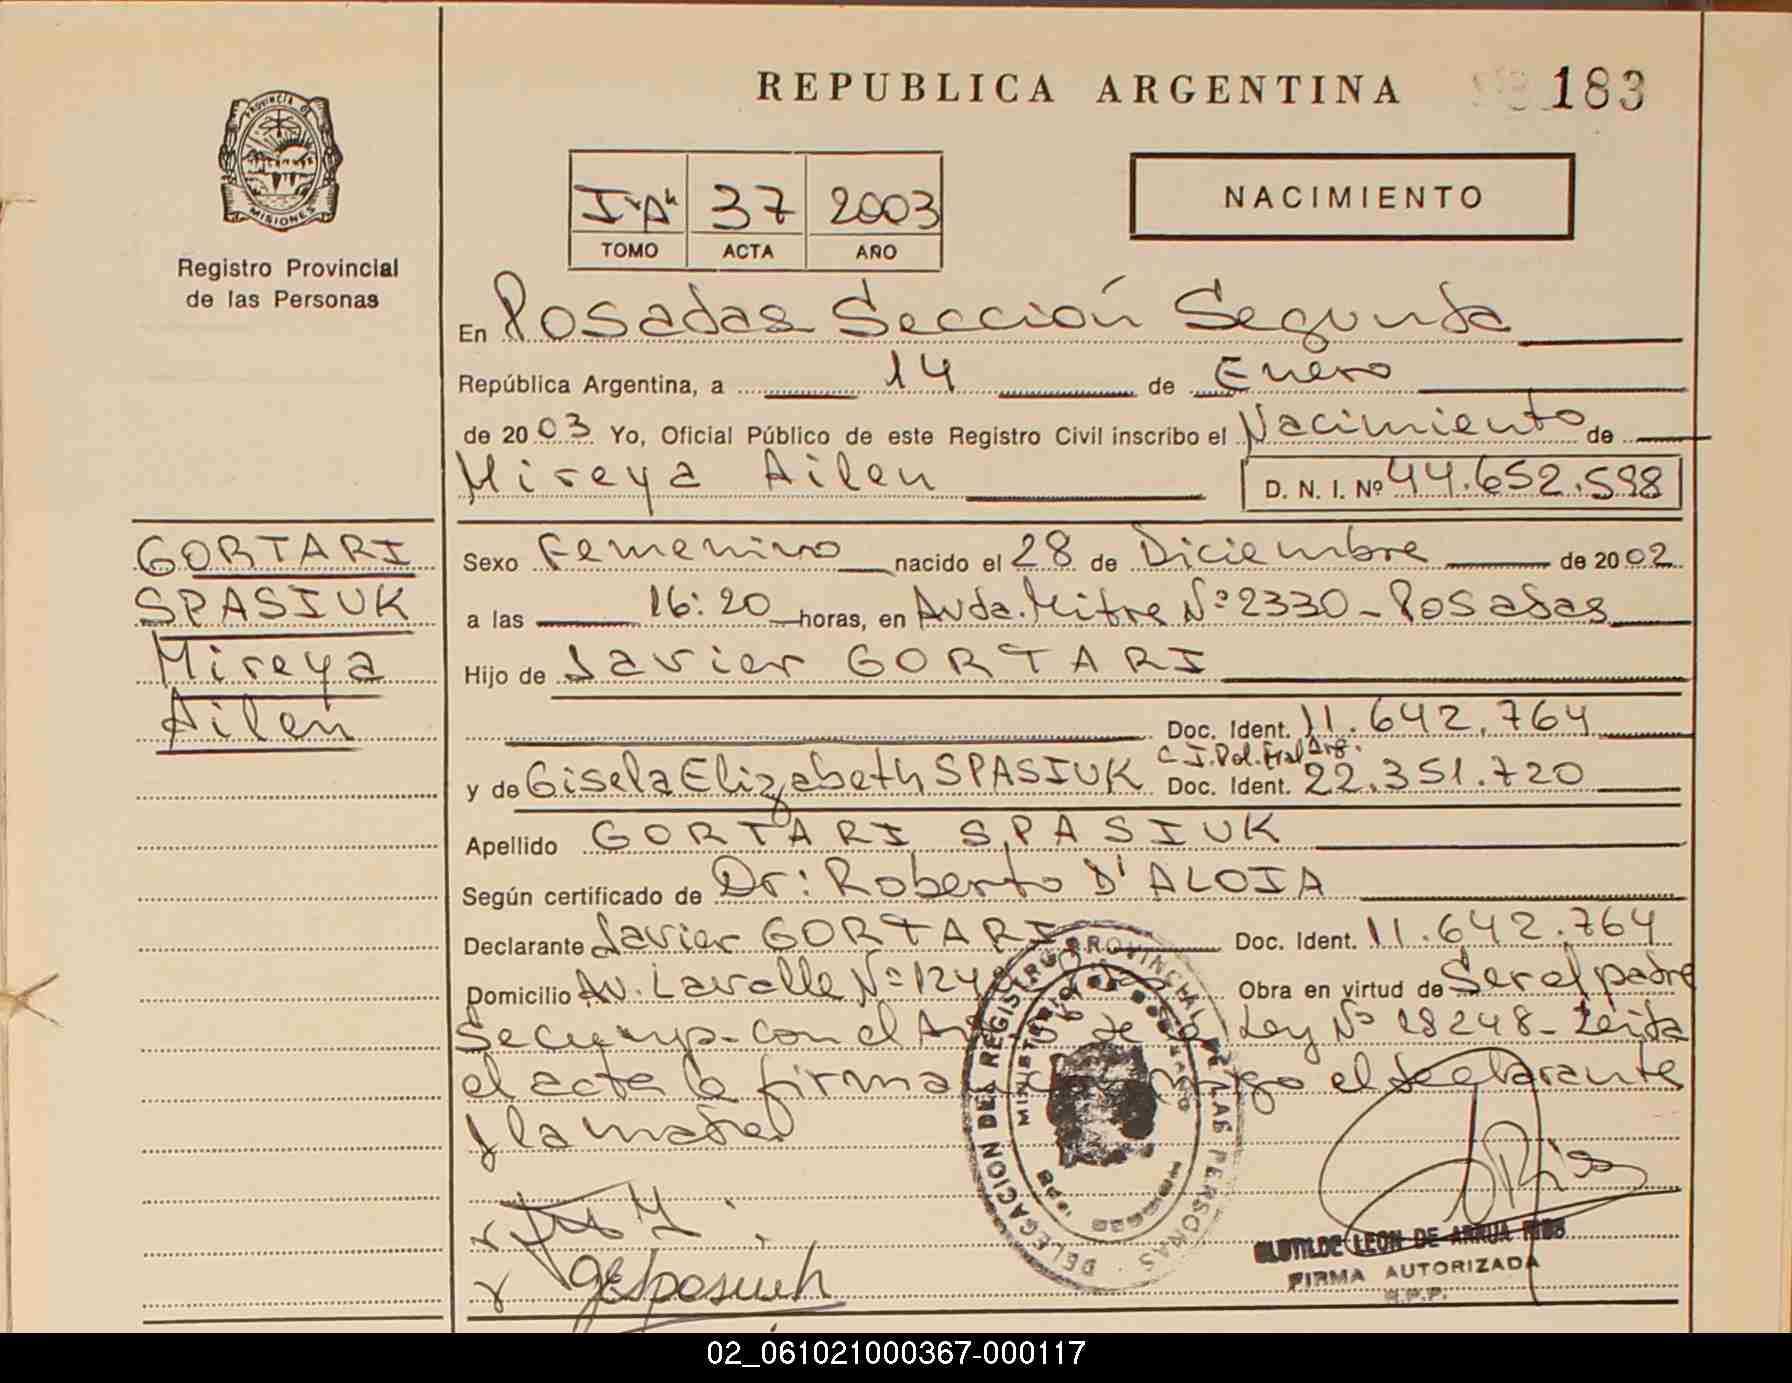 REPUBLICA ARGENTINA
183
PROVINCIA DE
MISIONES
Registro Provincial
de las Personas
I "A" 37 2003
TOMO ACTA AÑO
NACIMIENTO
En Posadas Sección Segunda
República Argentina, a 14 de Enero
de 2003 Yo, Oficial Público de este Registro Civil inscribo el Nacimiento de
Mireya Ailen D. N. I. Nº 44.652.598
GORTARI
SPASIUK
Mireya
Ailen
Sexo Femenino nacido el 28 de Diciembre de 2002
a las 16:20 horas, en Avda. Mitre Nº 2330 - Posadas
Hijo de Javier GORTARI
Doc. Ident. 11.642.764
C.I. Pol. Fral Arg.
y de Gisela Elizabeth SPASIUK Doc. Ident. 22.351.720
Apellido GORTARI SPASIUK
Según certificado de Dr: Roberto D'ALOIA
Declarante Javier GORTARI Doc. Ident. 11.642.764
Domicilio Av. Lavalle Nº 124 Obra en virtud de Ser el padre
Se cump. con el Ley Nº 18248 - Leida
el acta la firma el declarante
y la madre
DELEGACION DEL REGISTRO PROVINCIAL DE LAS PERSONAS
CLOTILDE LEON DE ARRUA RIOS
FIRMA AUTORIZADA
R.P.P.
02_061021000367-000117